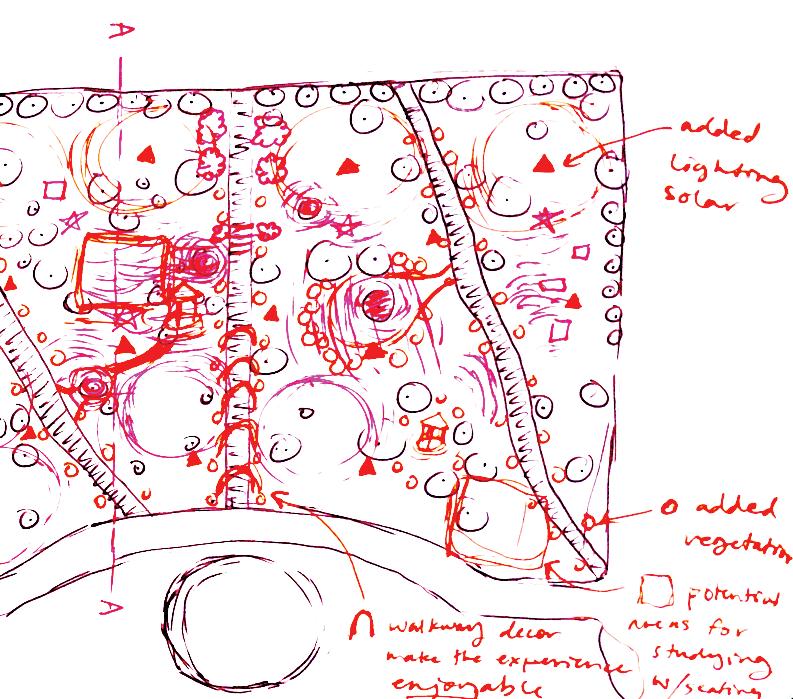 A
added
lighting
solar
added
vegetation
A
potential
areas for
studying
w/seating
walkway decor
make the experience
enjoyable